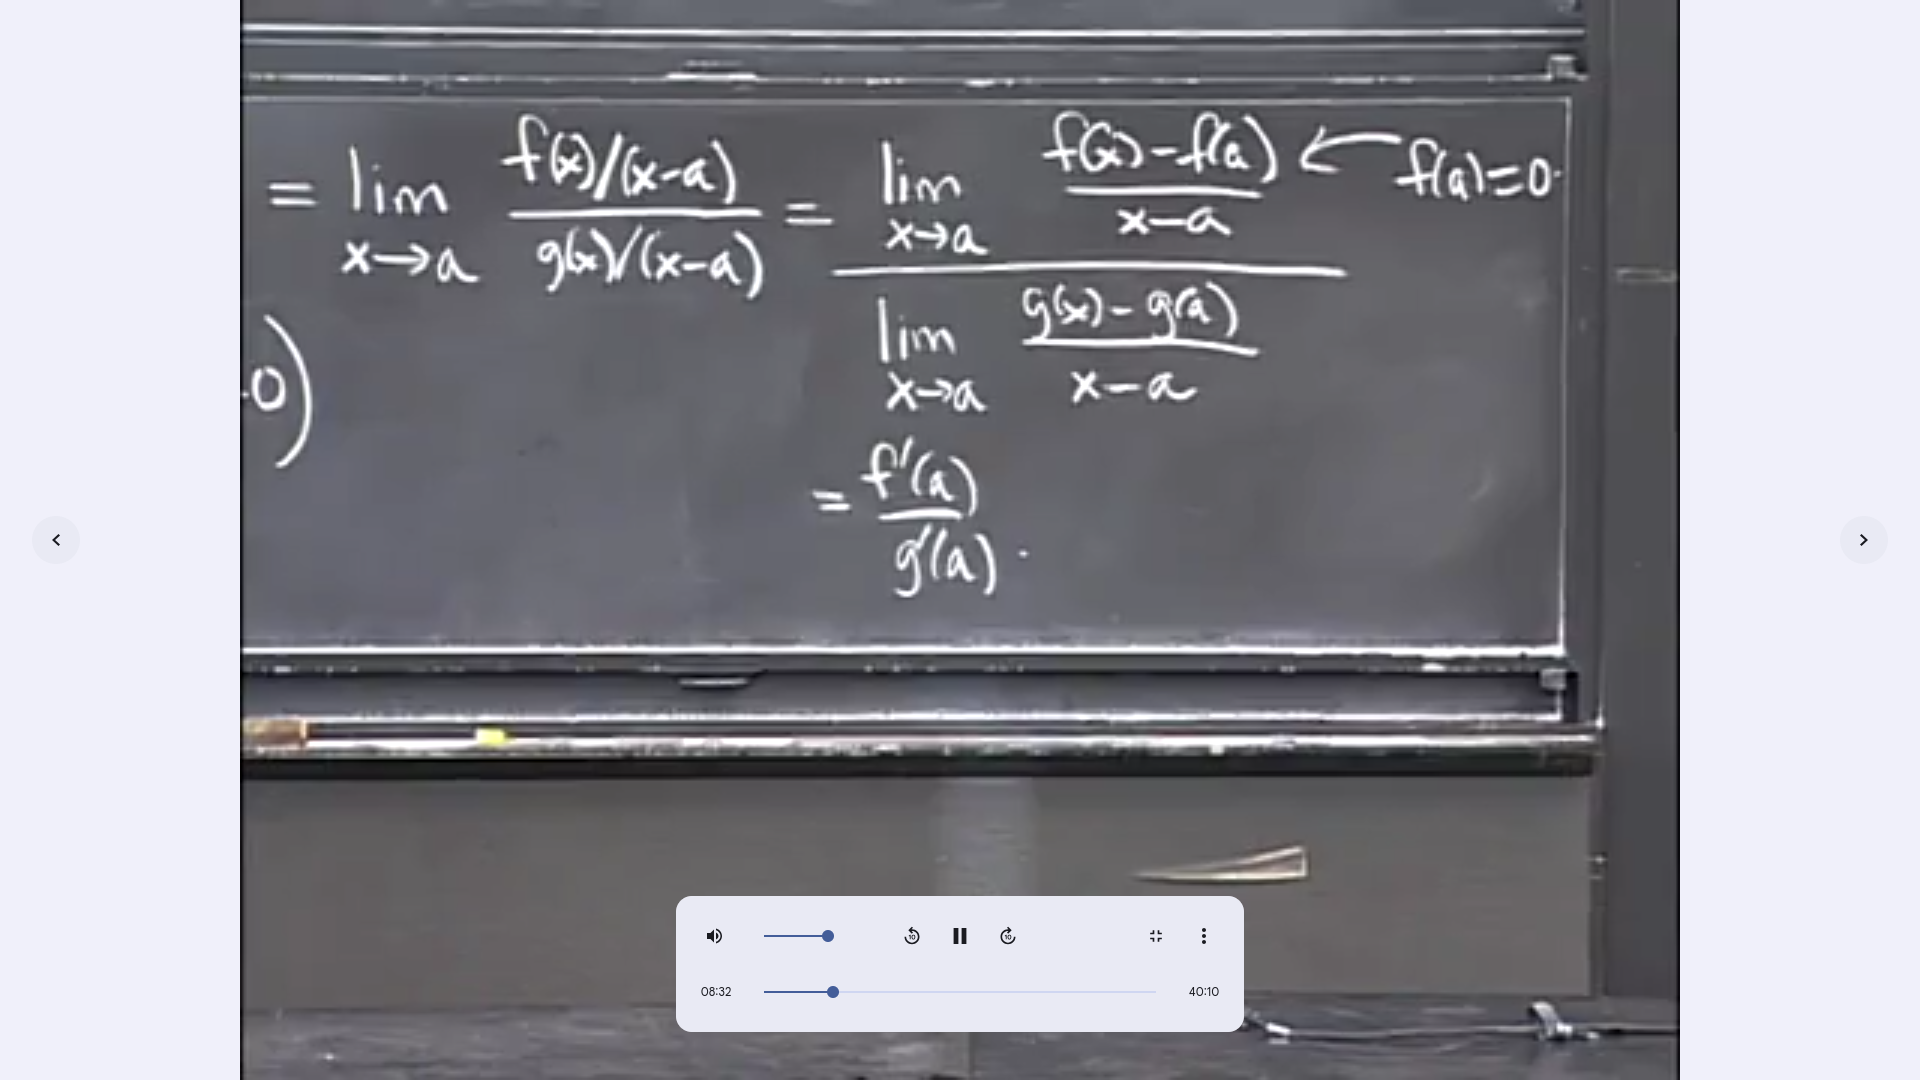 = lim x→a f(x)/(x-a) / g(x)/(x-a) = lim x→a f(x)-f(a) / x-a ← f(a)=0.
lim x→a g(x)-g(a) / x-a
.0)
= f'(a) / g'(a) .
10 10
08:32 40:10